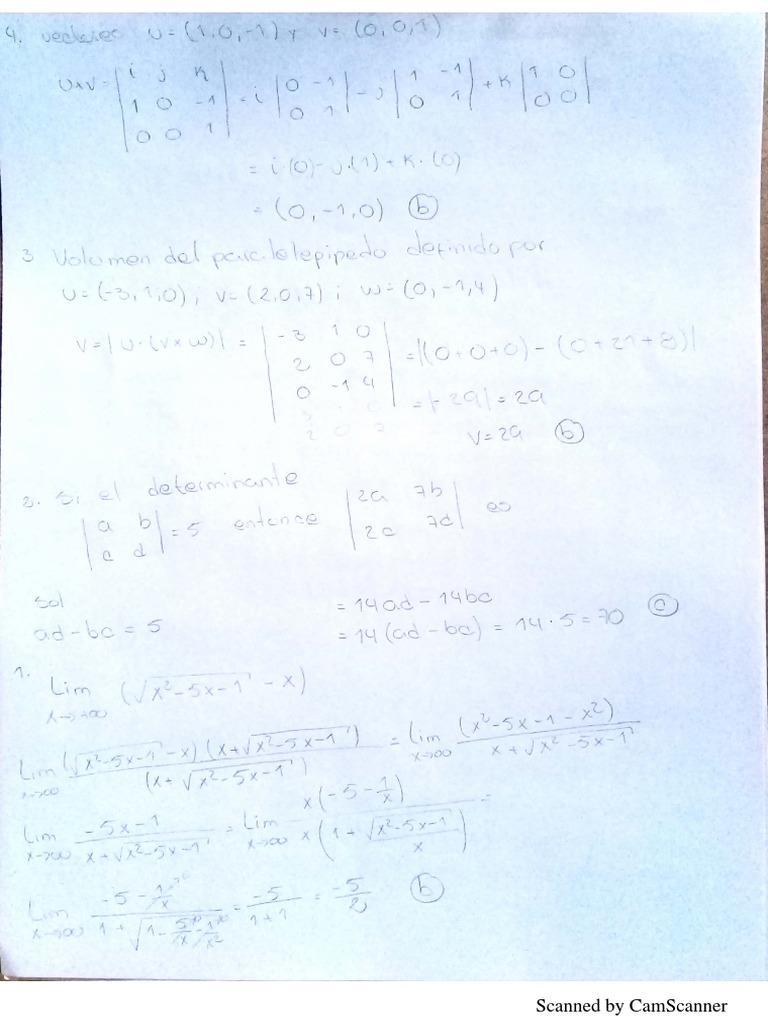 4. vectores u = (1,0,-1) y v = (0,0,1)
uxv = |i j k; 1 0 -1; 0 0 1| = i |0 -1; 0 1| - j |1 -1; 0 1| + k |1 0; 0 0|
= i(0) - j·(1) + k·(0)
= (0,-1,0) (b)
3 Volumen del paralelepipedo definido por
u = (-3,1,0) ; v = (2,0,7) ; w = (0,-1,4)
V = |u·(v×w)| = |-3 1 0; 2 0 7; 0 -1 4| = |(0+0+0) - (0+21+8)|
= |-29| = 29
V = 29 (b)
2. Si el determinante
|a b; c d| = 5 entonce |2a 7b; 2c 7d| es
Sol
ad - bc = 5
= 14ad - 14bc
= 14(ad - bc) = 14·5 = 70 (a)
1.
Lim x→+∞ (√(x²-5x-1) - x)
Lim x→∞ (√(x²-5x-1) - x)(x+√(x²-5x-1)) / (x+√(x²-5x-1)) = lim x→∞ (x²-5x-1-x²) / (x+√(x²-5x-1))
Lim x→∞ (-5x-1) / (x+√(x²-5x-1)) = Lim x→∞ x(-5-1/x) / x(1+√(x²-5x-1)/x) =
Lim x→∞ (-5-1/x→0) / (1+√(1-5/x→0-1/x²→0)) = -5/(1+1) = -5/2 (b)
Scanned by CamScanner